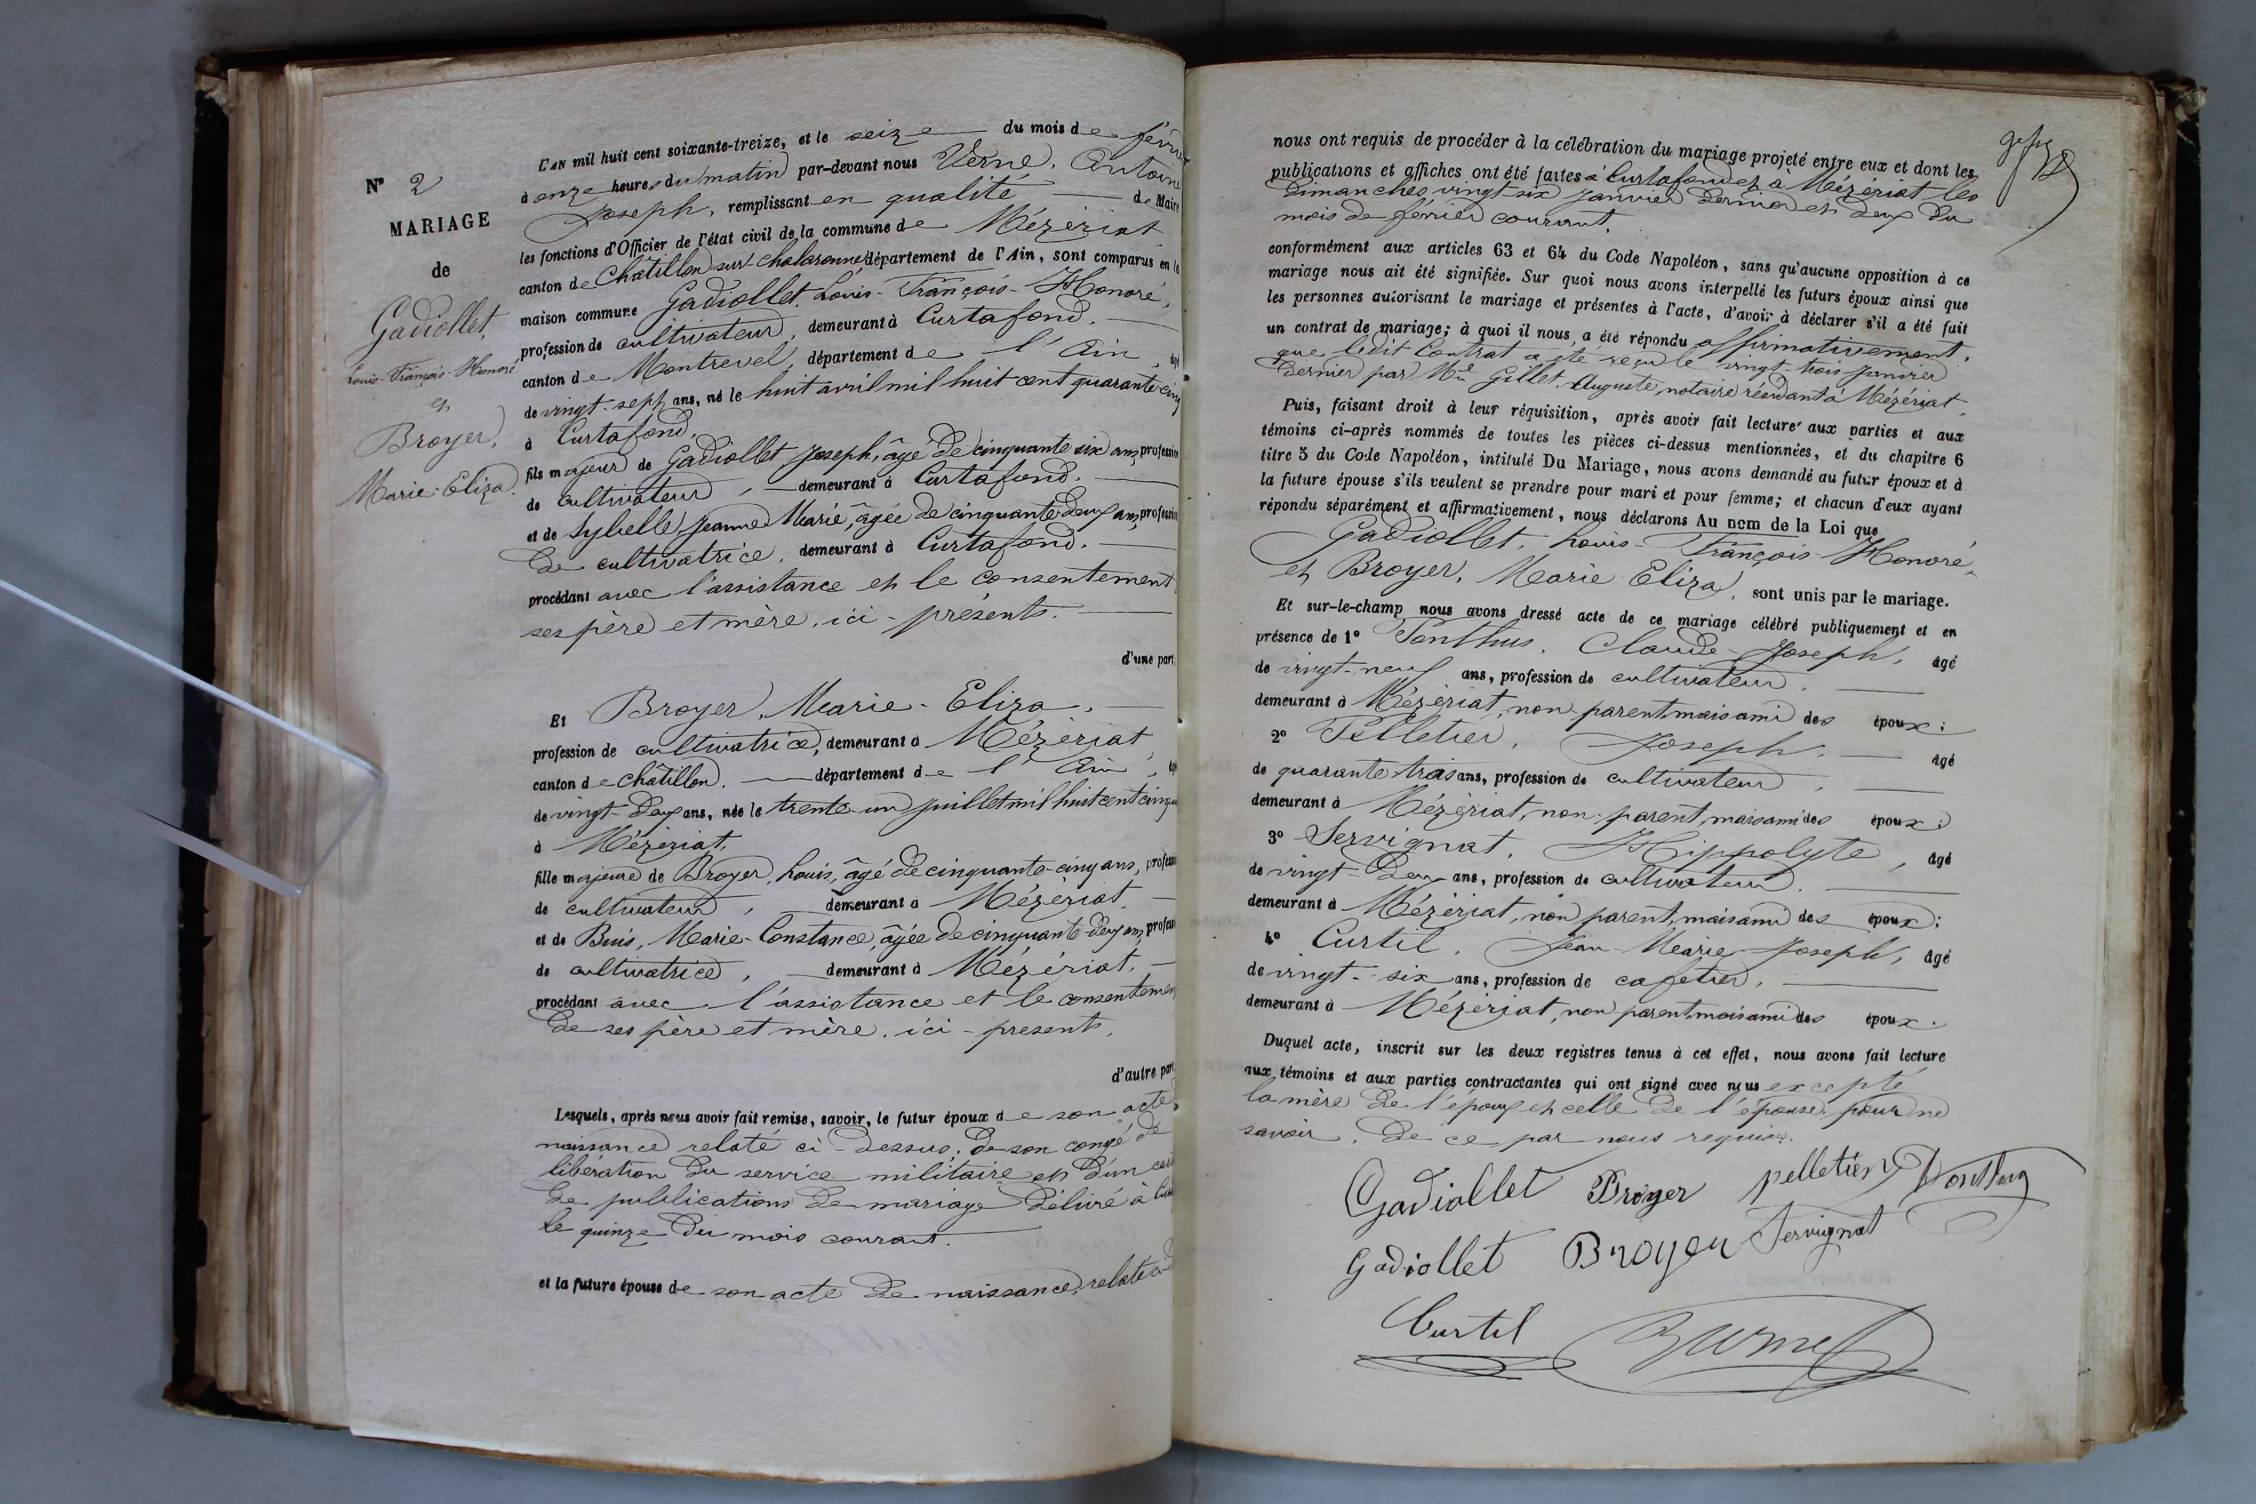 N° 2
MARIAGE
de
Gadiollet,
Louis-François-Honoré
et
Broyer,
Marie-Eliza.
L'AN mil huit cent soixante-treize, et le seize du mois de
à onze heures du matin par-devant nous Verne, Antoine
Joseph, remplissant en qualité de Maire
les fonctions d'Officier de l'état civil de la commune de Mézériat
canton de Châtillon sur Chalaronne département de l'Ain, sont comparus en la
maison commune Gadiollet, Louis-François-Honoré,
profession de cultivateur, demeurant à Curtafond.
canton de Montrevel, département de l'Ain, âgé
de vingt-sept ans, né le huit avril mil huit cent quarante cinq
à Curtafond,
fils majeur de Gadiollet Joseph, âgé de cinquante six ans, profession
de cultivateur, demeurant à Curtafond.
et de Jeanne Marie, âgée de cinquante deux ans, profession
de cultivatrice, demeurant à Curtafond.
procédant avec l'assistance et le consentement
ses père et mère, ici-présents.
d'une part,
Et Broyer, Marie-Eliza,
profession de cultivatrice, demeurant à Mézériat,
canton de Châtillon. département de l'Ain,
de vingt-deux ans, née le trente-un juillet mil huit cent
à Mézériat,
fille majeure de Broyer, Louis, âgé de cinquante-cinq ans,
de cultivateur, demeurant à Mézériat,
et de Buis, Marie-Constance, âgée de cinquante-deux ans,
de cultivatrice, demeurant à Mézériat,
procédant avec l'assistance et le
de ses père et mère, ici-présents,
d'autre part
Lesquels, après nous avoir fait remise, savoir, le futur époux de son acte
naissance relaté ci-dessus, de son congé de
libération du service militaire et d'un
de publications de mariage délivré à
le quinze du mois courant.
et la future épouse de son acte de naissance, relaté
nous ont requis de procéder à la célébration du mariage projeté entre eux et dont les
publications et affiches ont été faites à Curtafond et à Mézériat les
dimanches vingt six janvier dernier et deux du
mois de février courant,
conformément aux articles 63 et 64 du Code Napoléon, sans qu'aucune opposition à ce
mariage nous ait été signifiée. Sur quoi nous avons interpellé les futurs époux ainsi que
les personnes autorisant le mariage et présentes à l'acte, d'avoir à déclarer s'il a été fait
un contrat de mariage; à quoi il nous a été répondu affirmativement,
que ledit Contrat a été reçu le vingt-trois janvier
dernier par Gillet, Auguste, notaire résidant à Mézériat.
Puis, faisant droit à leur réquisition, après avoir fait lecture aux parties et aux
témoins ci-après nommés de toutes les pièces ci-dessus mentionnées, et du chapitre 6
titre 5 du Code Napoléon, intitulé Du Mariage, nous avons demandé au futur époux et à
la future épouse s'ils veulent se prendre pour mari et pour femme; et chacun d'eux ayant
répondu séparément et affirmativement, nous déclarons Au nom de la Loi que
Gadiollet, Louis-François-Honoré
et Broyer, Marie Eliza, sont unis par le mariage.
Et sur-le-champ nous avons dressé acte de ce mariage célébré publiquement et en
présence de 1° Ponthus, Claude-Joseph, âgé
de vingt-neuf ans, profession de cultivateur,
demeurant à Mézériat, non parent, mais ami des époux;
2° Pelletier, Joseph, âgé
de quarante trois ans, profession de cultivateur,
demeurant à Mézériat, non parent, mais ami des époux;
3° Servignat, Hippolyte, âgé
de vingt-deux ans, profession de cultivateur,
demeurant à Mézériat, non parent, mais ami des époux;
4° Curtil, Jean-Marie-Joseph, âgé
de vingt-six ans, profession de cafetier,
demeurant à Mézériat, non parent, mais ami des époux.
Duquel acte, inscrit sur les deux registres tenus à cet effet, nous avons fait lecture
aux témoins et aux parties contractantes qui ont signé avec nous excepté
la mère de l'époux et celle de l'épouse, pour ne
savoir, de ce par nous requises.
Gadiollet Broyer pelletier Ponthus
Gadiollet Broyer Servignat
Curtil